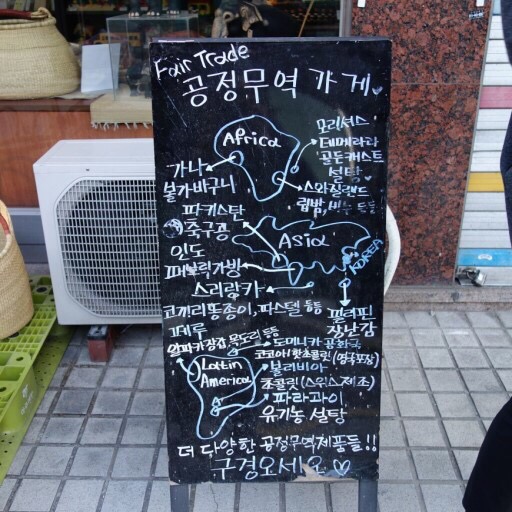 Fair Trade
공정무역 가게
Africa
모리셔스
데메라라
골든캐스트
설탕
가나
볼가바구니
스와질랜드
립밤, 비누 등등
파키스탄
축구공
Asia
KOREA
인도
퍼블릭가방
스리랑카
코끼리똥종이, 파스텔 등등
필리핀
장난감
페루
알파카장갑, 목도리 등등
도미니카 공화국
코코아/핫초콜릿 (영국포장)
Latin
America
볼리비아
초콜릿 (스위스제조)
파라과이
유기농 설탕
더 다양한 공정무역제품들!!
구경오세요